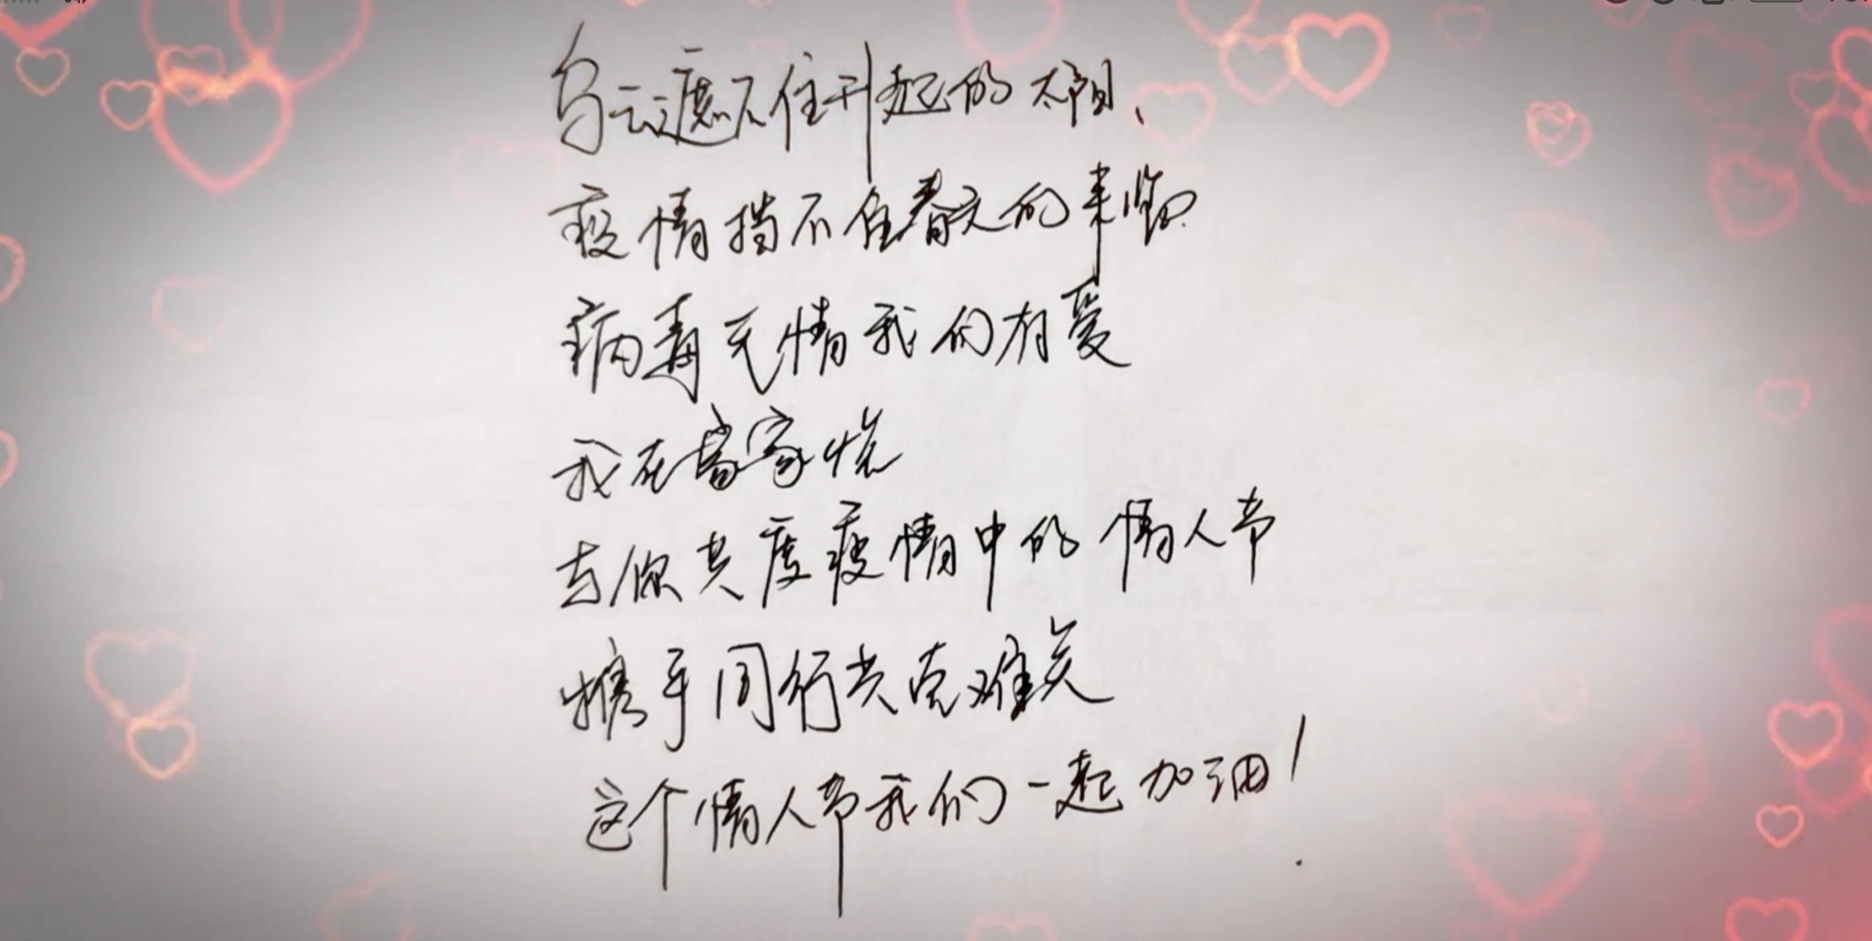 乌云遮不住升起的太阳、
疫情挡不住春天的来临
病毒无情我们有爱
我在富家悦
与你共度疫情中的情人节
携手同行共克难关
这个情人节我们一起加油!